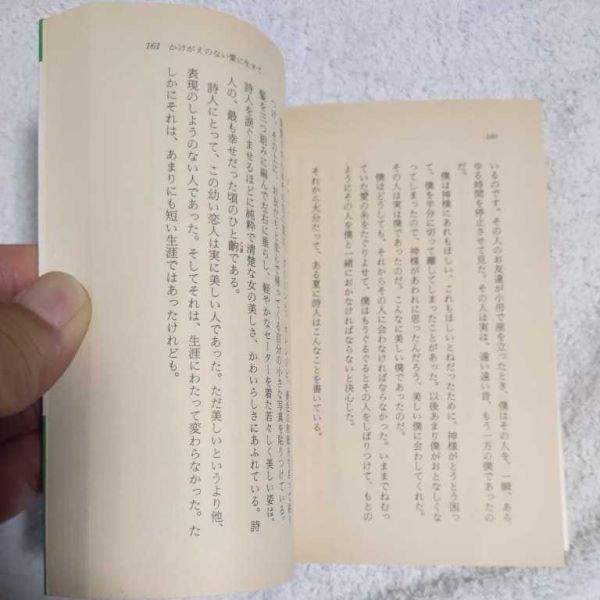 160
いるのです。その人のお友達が小用で座を立ったとき、僕はその人を、一瞬、あら
ゆる時間を停止させて見た。その人は実は、遠い遠い昔、もう一方の僕であったの
だ。
僕は神様にあれもほしい、これもほしいとねだったために、神様がとうとう困っ
て、僕を半分に切って離してしまったことがあった。以後あまり僕がおとなしくな
ってしまったので、神様があわれに思ったんだろう、美しい僕に会わしてくれた。
その人は実は僕であったのだ。こんなに美しい僕であったのだ。
僕はどうしても、それからその人に会わなければならなかった。いままでねむっ
ていた愛の糸をたぐりよせて、僕はもうぐるぐるとその人をしばりつけて、もとの
ようにその人を僕と一緒におかなければならないと決心した。
それから大分たって、ある夏に詩人はこんなことを書いている。
161 かけがえのない愛に生きて
つけ、その上に、お友だちと並んで
自分の小さな写真を貼りつけている。
髪を三つ組みに編んで左右に垂らし、軽やかなセーターを着た若々しく美しい姿は、
詩人を涙ぐませるほどに純粋で清楚な女の美しさ、かわいらしさにあふれている。詩
人の、最も幸せだった頃のひと齣である。
詩人にとって、この幼い恋人は実に美しい人であった。ただ美しいというより他、
表現のしようのない人であった。そしてそれは、生涯にわたって変わらなかった。た
しかにそれは、あまりにも短い生涯ではあったけれども。